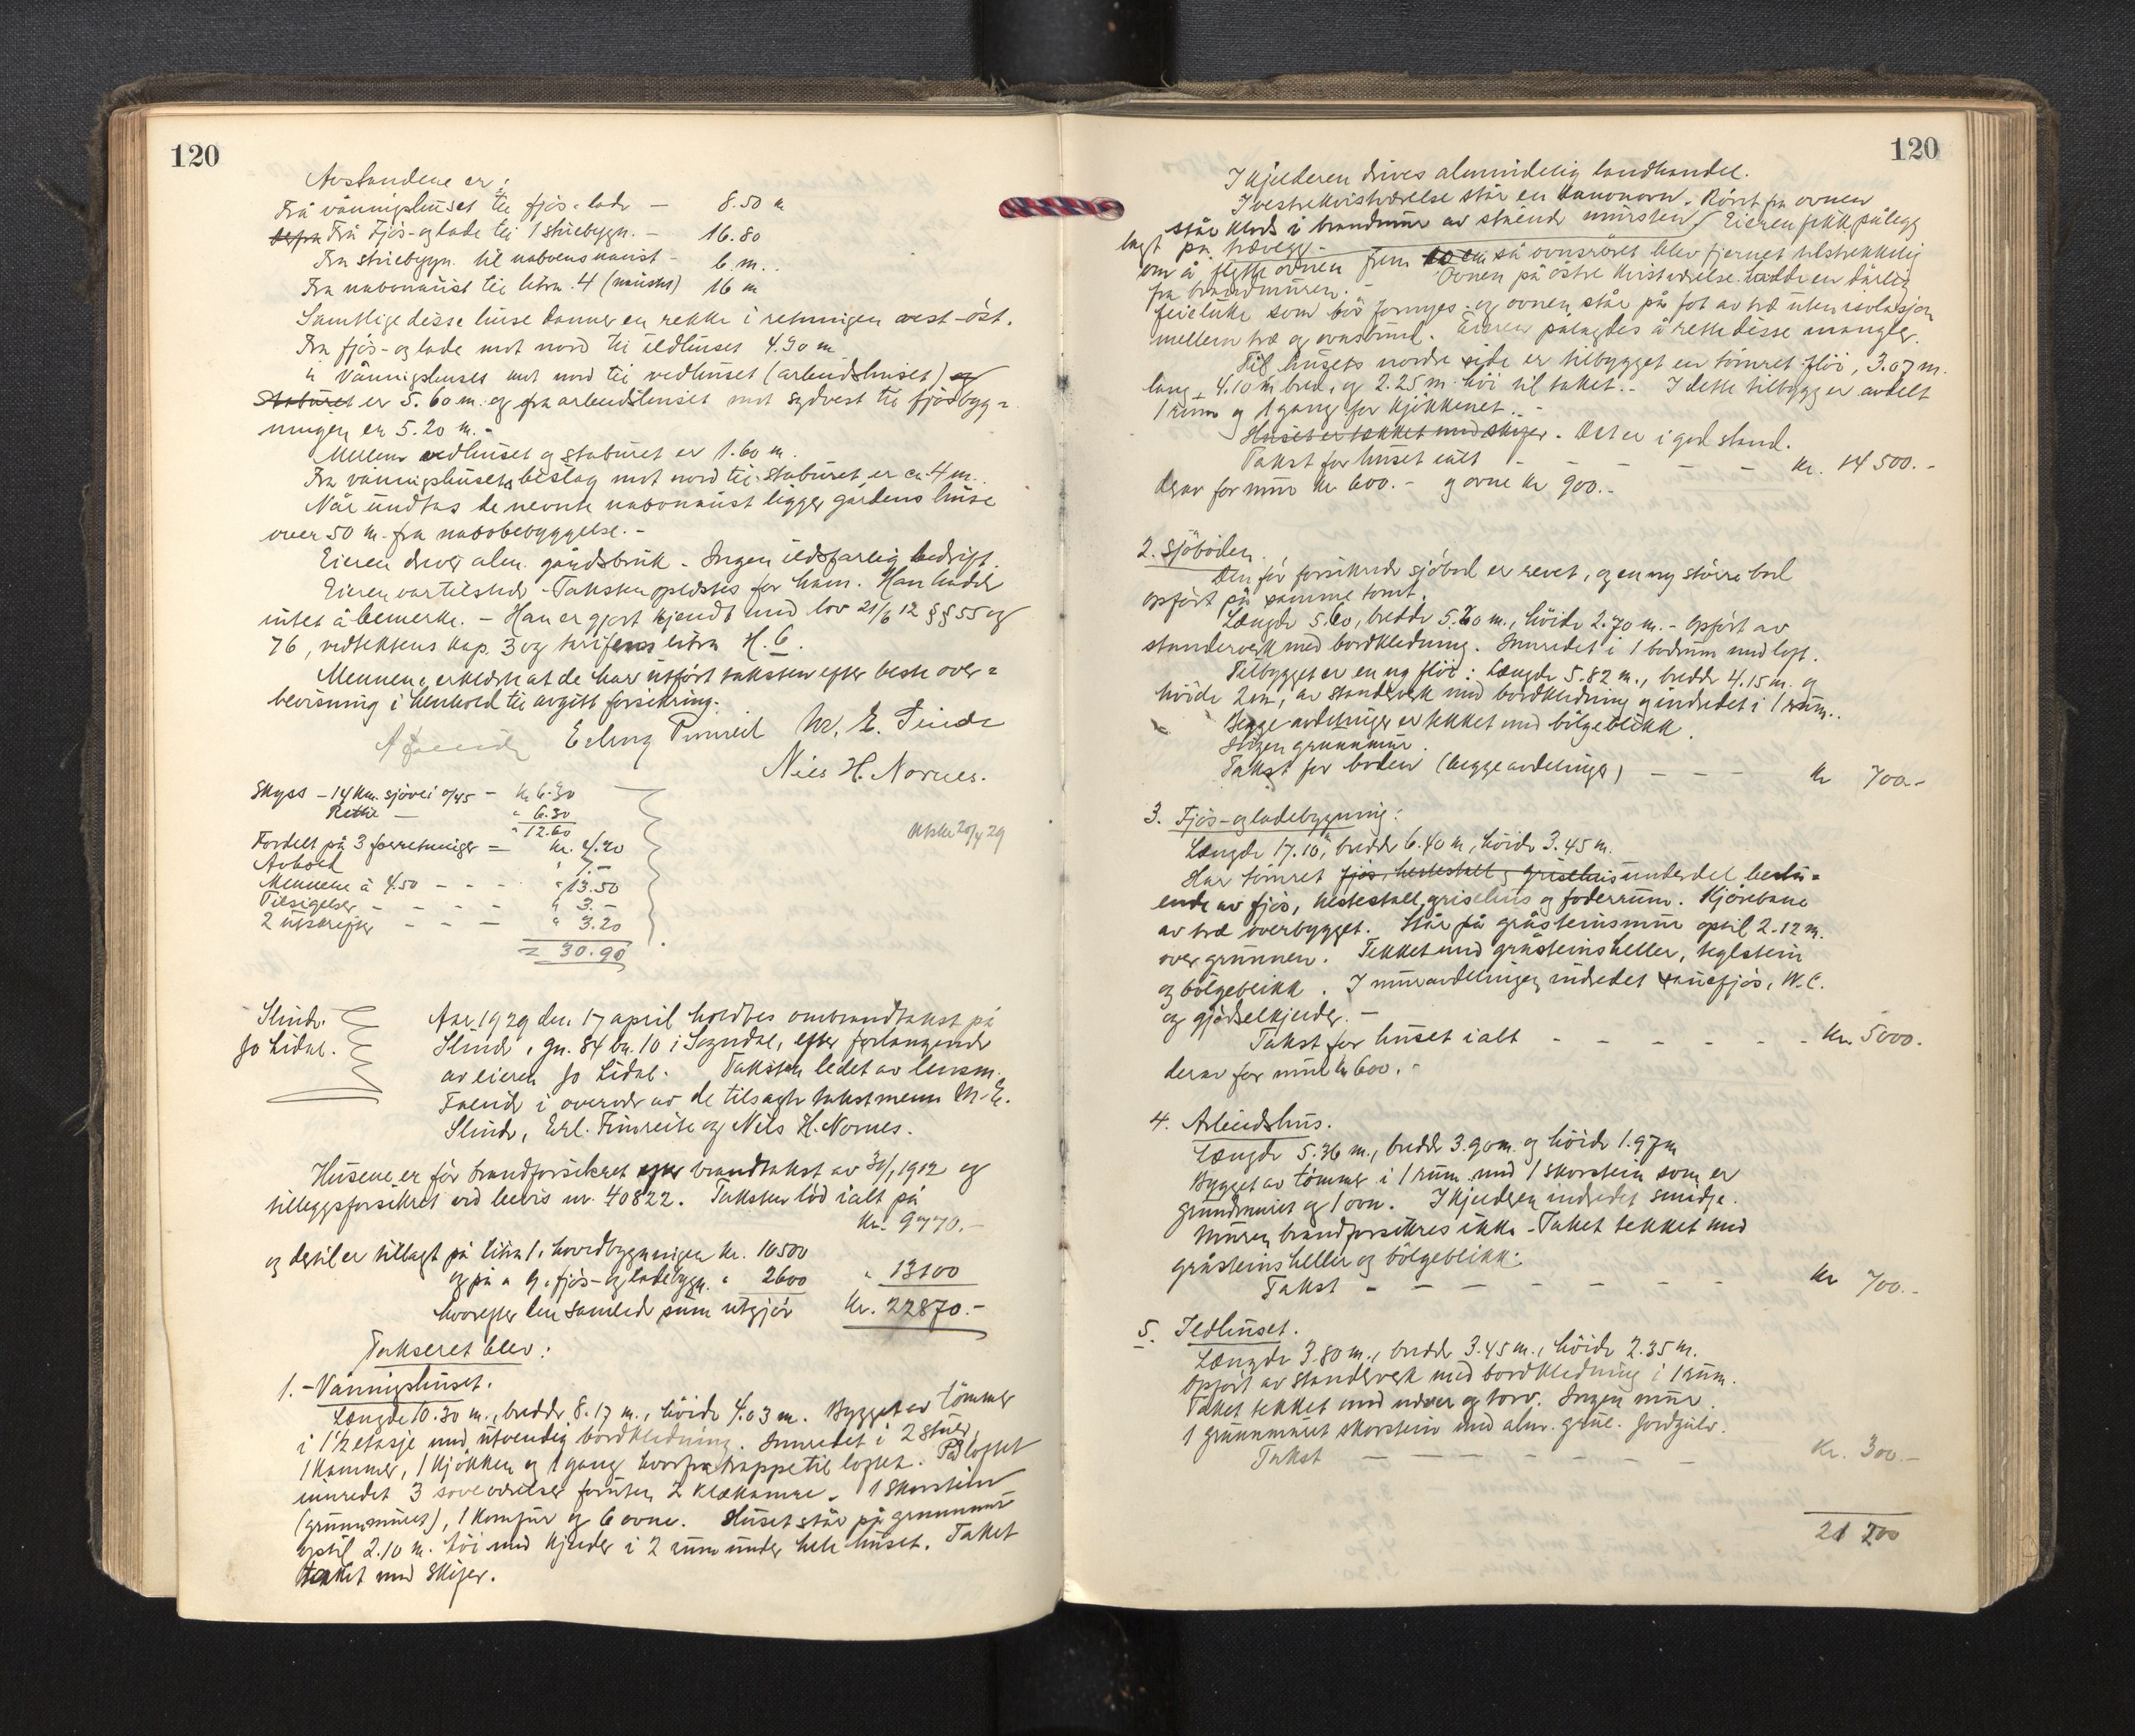 120
Avstandene er:
Frå våningshuset til fjös-lade — 8.50 m
Frå Fjös- og lade til 1 skiebygn. — 16.80
Fra skiebygn. til naboens naust — 6 m..
Fra nabonaust til litra. 4 (naustet) 16 m
Samtlige disse huse danner en rekke i retningen vest-öst.
Fra fjös- og lade mot nord til ildhuset 4.30 m
" Våningshuset mot nord til vedhuset (arbeidshuset) og
Staburet er 5.60 m. og fra arbeidshuset mot sydvest til fjösbyg=
ningen er 5.20 m. -
Mellem vedhuset og staburet er 1.60 m.
Fra våningshusets bislag mot nord til staburet er ca. 4 m..
Når undtas de nevnte nabonaust ligger gårdens huse
over 50 m. fra nabobebyggelse. -
Eieren driver alm. gårdsbruk - Ingen ildsfarlig bedrift.
Eieren var tilstede - Taksten oplæstes for ham. Han hadde
intet å bemerke. - Han er gjort kjendt med lov 21/6 12 §§ 55 og
76, vedtektens kap. 3 og tariffens litra H. 6.
Mennene erklærte at de har utfört taksten efter beste over=
bevisning i henhold til avgitt forsikring.
Erling Timreit M. E. Slinde
Nils H. Nornes.
Skyss - 14 km. sjövei o/45 - kr 6.30
Retur — " 6.30
" 12.60
Fordelt på 3 forretninger = kr. 4.20
Avhold " 7.-
Mennene à 4.50 - - - " 13.50
Tilsigelser - - - - " 3.-
2 utskrifter - - - " 3.20
= 30.90
Utskr 20/4 29
Slinde.
Jo Lidal.
Aar 1929 den 17 april holdtes ombrandtakst på
Slinde, gn. 84 bn. 10 i Sogndal, efter forlangende
av eieren Jo Lidal. Taksten ledet av lensm.
Faleide i overvær av de tilsagte takstmenn M. E.
Slinde, Erl. Timreite og Nils H. Nornes.
Husene er för brandforsikret efter brandtakst av 30/1 1912 og
tilleggsforsikret ved bevis nr. 40822. Taksten löd ialt på
Kr. 9770.-
og dertil er tillagt på litra 1, hovedbygningen kr. 10500
og på " 9, fjös- og ladebygn. " 2600 " 13100
hvorefter den samlede sum utgjör Kr. 22870.-
Takseret blev:
1. - Våningshuset.
Længde 10.30 m., bredde 8.17 m., höide 4.03 m. Bygget av tömmer
i 1½ etasje med utvendig bordkledning. Innredet i 2 stuer,
1 kammer, 1 kjökken og 1 gang hvorfra trappe til loftet. På loftet
innredet 3 soveværelser foruten 2 klækamre. 1 skorstein
(grunnmuret), 1 komfur og 6 ovne. Huset står på grunnmur
optil 2.10 m. höi med kjelder i 2 rum under hele huset. Taket
tækket med skifer.
120
I kjelderen drives almindelig landhandel.
I vestre kvistværelse står en kanonovn. Röret fra ovnen
står klods i brandmur av stående mursten Eieren fikk pålegg
lagt på trævegg -
om å flytte ovnen frem 10 cm så ovnsröret blev fjernet tilstrekkelig
fra brandmuren. - Ovnen på östre kvistværelse hadde en dårlig
feieluke som bör fornyes og ovnen står på fot av træ uten isolasjon
mellem træ og ovnsbund. Eieren pålagdes å rette disse mangler.
Til husets nordre side er tilbygget en tömret flöi, 3.07 m.
lang, 4.10 m bred, og 2.25 m. höi til taket. - I dette tilbygg er avdelt
1 rum og 1 gang for kjökkenet. -
Huset er tækket med skifer. Det er i god stand.
Takst for huset ialt - - - - - kr. 14 500.-
derav for mur kr 600.- og ovne kr 900.-
2. Sjöboden.
Den för forsikrede sjöbod er revet, og en ny större bod
opfört på samme tomt.
Længde 5.60, bredde 5.20 m., höide 2.70 m. - Opfört av
standerverk med bordkledning. Innredet i 1 bodrum med loft.
Tilbygget er en ny flöi: Længde 5.82 m., bredde 4.15 m. og
höide 2 m, av standerverk med bordkledning og indredet i 1 rum..
Begge avdelinger er tekket med bölgeblikk.
Ingen grunnmur.
Takst for boden (begge avdelinger) - - - kr 700.-
3. Fjös- og ladebygning:
Længde 17.10, bredde 6.40 m, höide 3.45 m.
Har tömret fjös, hestestall, grisehus underdel bestå=
ende av fjös, hestestall, grisehus og foderrum. Kjörebane
av træ overbygget. Står på gråsteinsmur optil 2.12 m.
over grunnen. Tekket med gråsteinsheller, teglstein
og bölgeblikk. I muravdelingen indredet sauefjös, W.C.
og gjödselkjelder. -
Takst for huset ialt - - - - - - kr. 5000.
derav for mur kr 600.-
4. Arbeidshus.
Længde 5.36 m., bredde 3.90 m. og höide 1.97 m
Bygget av tömmer i 1 rum med 1 skorstein som er
grundmuret og 1 ovn. I kjelderen indredet smidje.
Muren brandforsikres ikke - Taket tekket med
gråsteinsheller og bölgeblikk.
Takst - - - - - - - - kr 700.-
5. Ildhuset.
Længde 3.80 m., bredde 3.45 m., höide 2.35 m.
Opfört av standerverk med bordkledning i 1 rum.
Taket tekket med næver og torv. Ingen mur.
1 grunnmuret skorstein med alm. grue. Jordgulv.
Takst - - - - - - - kr. 300.-
21 200